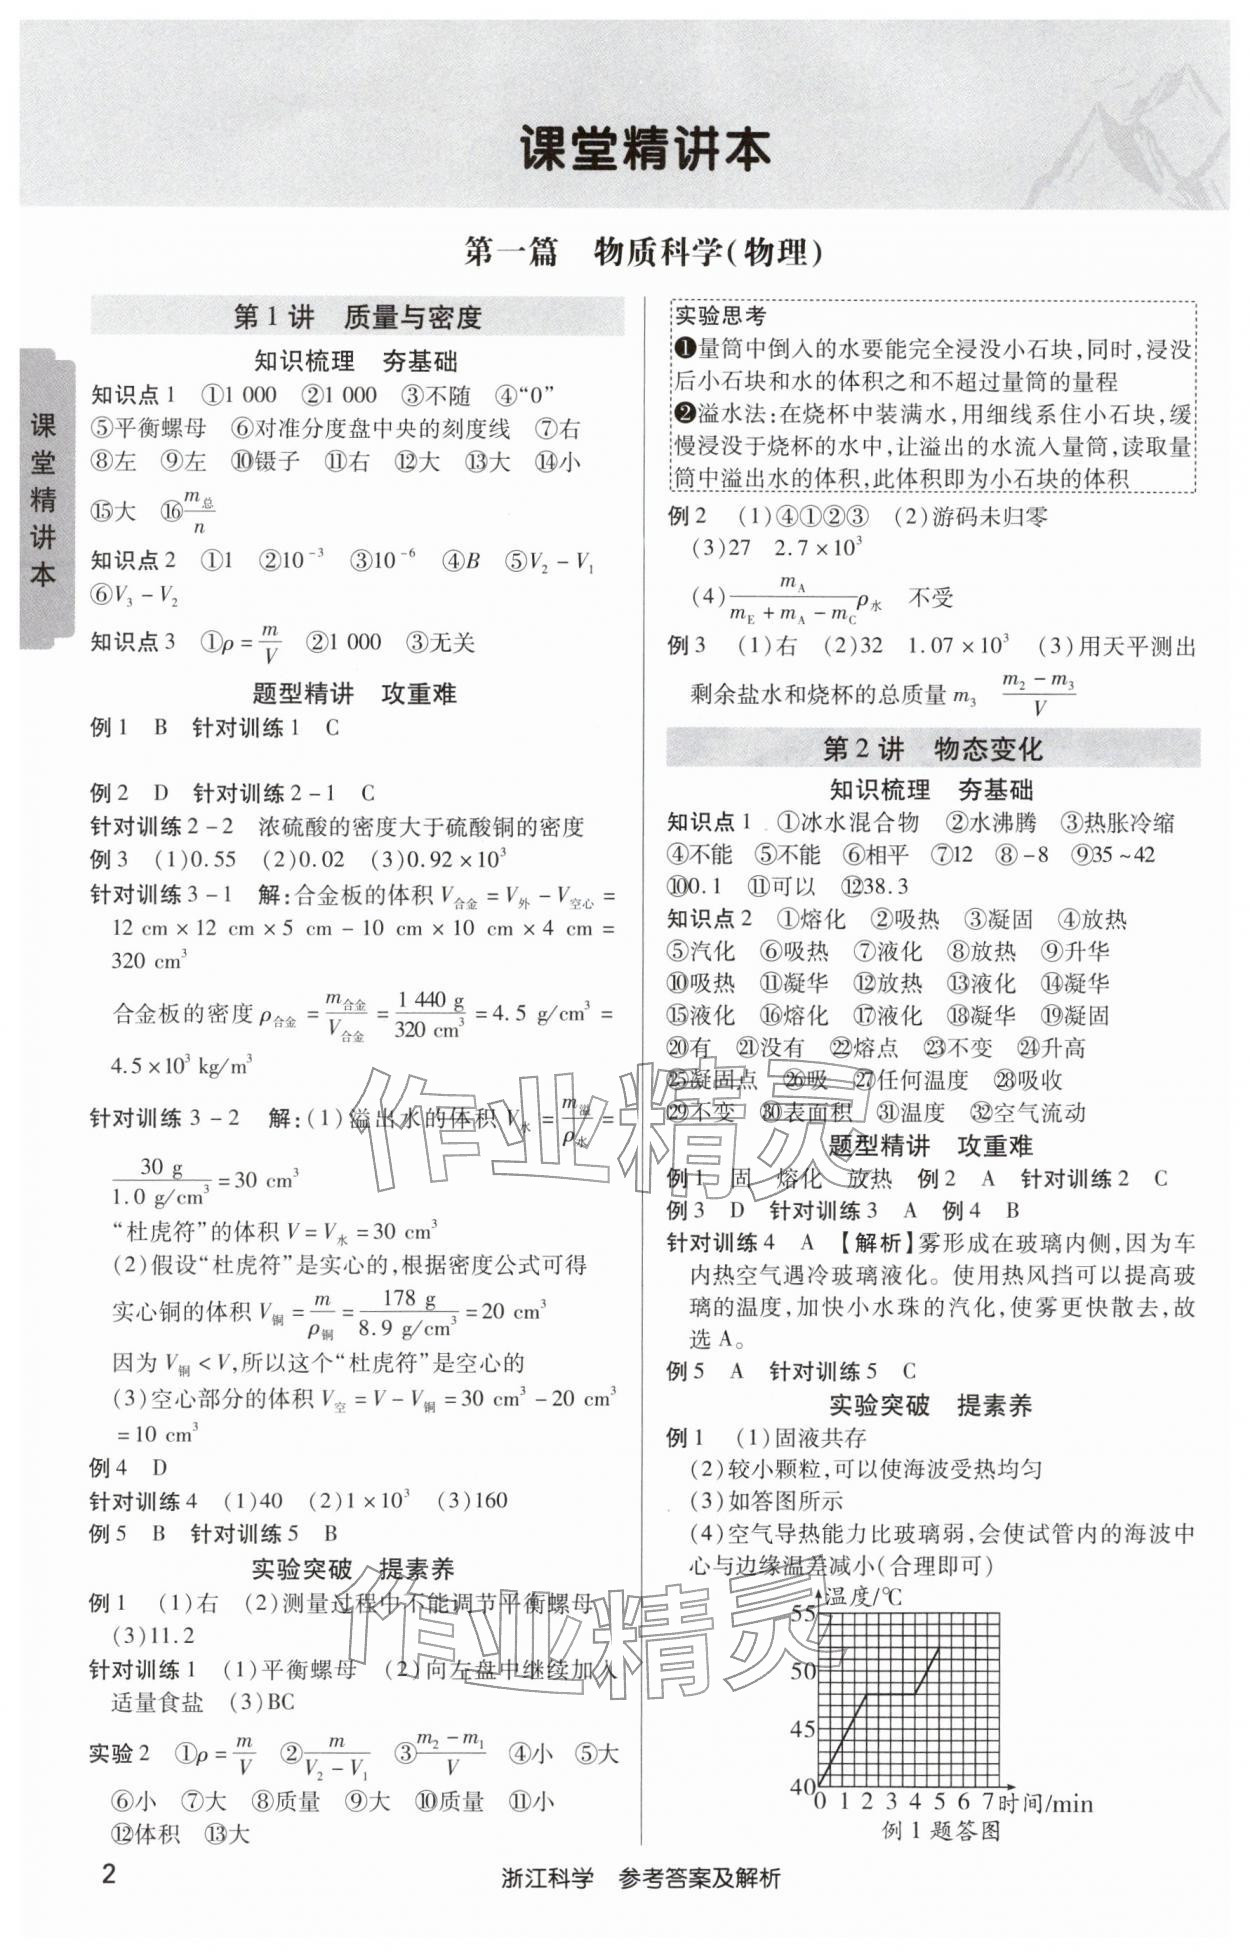 课堂精讲本
第一篇 物质科学(物理)
课堂精讲本
第1讲 质量与密度
知识梳理 夯基础
知识点1 ①1 000 ②1 000 ③不随 ④“0”
⑤平衡螺母 ⑥对准分度盘中央的刻度线 ⑦右
⑧左 ⑨左 ⑩镊子 ⑪右 ⑫大 ⑬大 ⑭小
⑮大 ⑯m总/n
知识点2 ①1 ②10⁻³ ③10⁻⁶ ④B ⑤V₂-V₁
⑥V₃-V₂
知识点3 ①ρ=m/V ②1 000 ③无关
题型精讲 攻重难
例1 B 针对训练1 C
例2 D 针对训练2-1 C
针对训练2-2 浓硫酸的密度大于硫酸铜的密度
例3 (1)0.55 (2)0.02 (3)0.92×10³
针对训练3-1 解:合金板的体积V合金=V外-V空心=
12 cm×12 cm×5 cm-10 cm×10 cm×4 cm=
320 cm³
合金板的密度ρ合金=m合金/V合金=1 440 g/320 cm³=4.5 g/cm³=
4.5×10³ kg/m³
针对训练3-2 解:(1)溢出水的体积V水=m溢/ρ水=
30 g/1.0 g/cm³=30 cm³
“杜虎符”的体积V=V水=30 cm³
(2)假设“杜虎符”是实心的,根据密度公式可得
实心铜的体积V铜=m/ρ铜=178 g/8.9 g/cm³=20 cm³
因为V铜<V,所以这个“杜虎符”是空心的
(3)空心部分的体积V空=V-V铜=30 cm³-20 cm³
=10 cm³
例4 D
针对训练4 (1)40 (2)1×10³ (3)160
例5 B 针对训练5 B
实验突破 提素养
例1 (1)右 (2)测量过程中不能调节平衡螺母
(3)11.2
针对训练1 (1)平衡螺母 (2)向左盘中继续加入
适量食盐 (3)BC
实验2 ①ρ=m/V ②m/(V₂-V₁) ③(m₂-m₁)/V ④小 ⑤大
⑥小 ⑦大 ⑧质量 ⑨大 ⑩质量 ⑪小
⑫体积 ⑬大
实验思考
❶量筒中倒入的水要能完全浸没小石块,同时,浸没
后小石块和水的体积之和不超过量筒的量程
❷溢水法:在烧杯中装满水,用细线系住小石块,缓
慢浸没于烧杯的水中,让溢出的水流入量筒,读取量
筒中溢出水的体积,此体积即为小石块的体积
例2 (1)④①②③ (2)游码未归零
(3)27 2.7×10³
(4)mA/(mE+mA-mC)ρ水 不受
例3 (1)右 (2)32 1.07×10³ (3)用天平测出
剩余盐水和烧杯的总质量m₃ (m₂-m₃)/V
第2讲 物态变化
知识梳理 夯基础
知识点1 ①冰水混合物 ②水沸腾 ③热胀冷缩
④不能 ⑤不能 ⑥相平 ⑦12 ⑧-8 ⑨35~42
⑩0.1 ⑪可以 ⑫38.3
知识点2 ①熔化 ②吸热 ③凝固 ④放热
⑤汽化 ⑥吸热 ⑦液化 ⑧放热 ⑨升华
⑩吸热 ⑪凝华 ⑫放热 ⑬液化 ⑭凝华
⑮液化 ⑯熔化 ⑰液化 ⑱凝华 ⑲凝固
⑳有 ㉑没有 ㉒熔点 ㉓不变 ㉔升高
㉕凝固点 ㉖吸 ㉗任何温度 ㉘吸收
㉙不变 ㉚表面积 ㉛温度 ㉜空气流动
题型精讲 攻重难
例1 固 熔化 放热 例2 A 针对训练2 C
例3 D 针对训练3 A 例4 B
针对训练4 A 【解析】雾形成在玻璃内侧,因为车
内热空气遇冷玻璃液化。使用热风挡可以提高玻
璃的温度,加快小水珠的汽化,使雾更快散去,故
选A。
例5 A 针对训练5 C
实验突破 提素养
例1 (1)固液共存
(2)较小颗粒,可以使海波受热均匀
(3)如答图所示
(4)空气导热能力比玻璃弱,会使试管内的海波中
心与边缘温差减小(合理即可)
温度/℃
55
50
45
40
0 1 2 3 4 5 6 7 时间/min
例1题答图
作业精灵
作业精灵
2
浙江科学 参考答案及解析